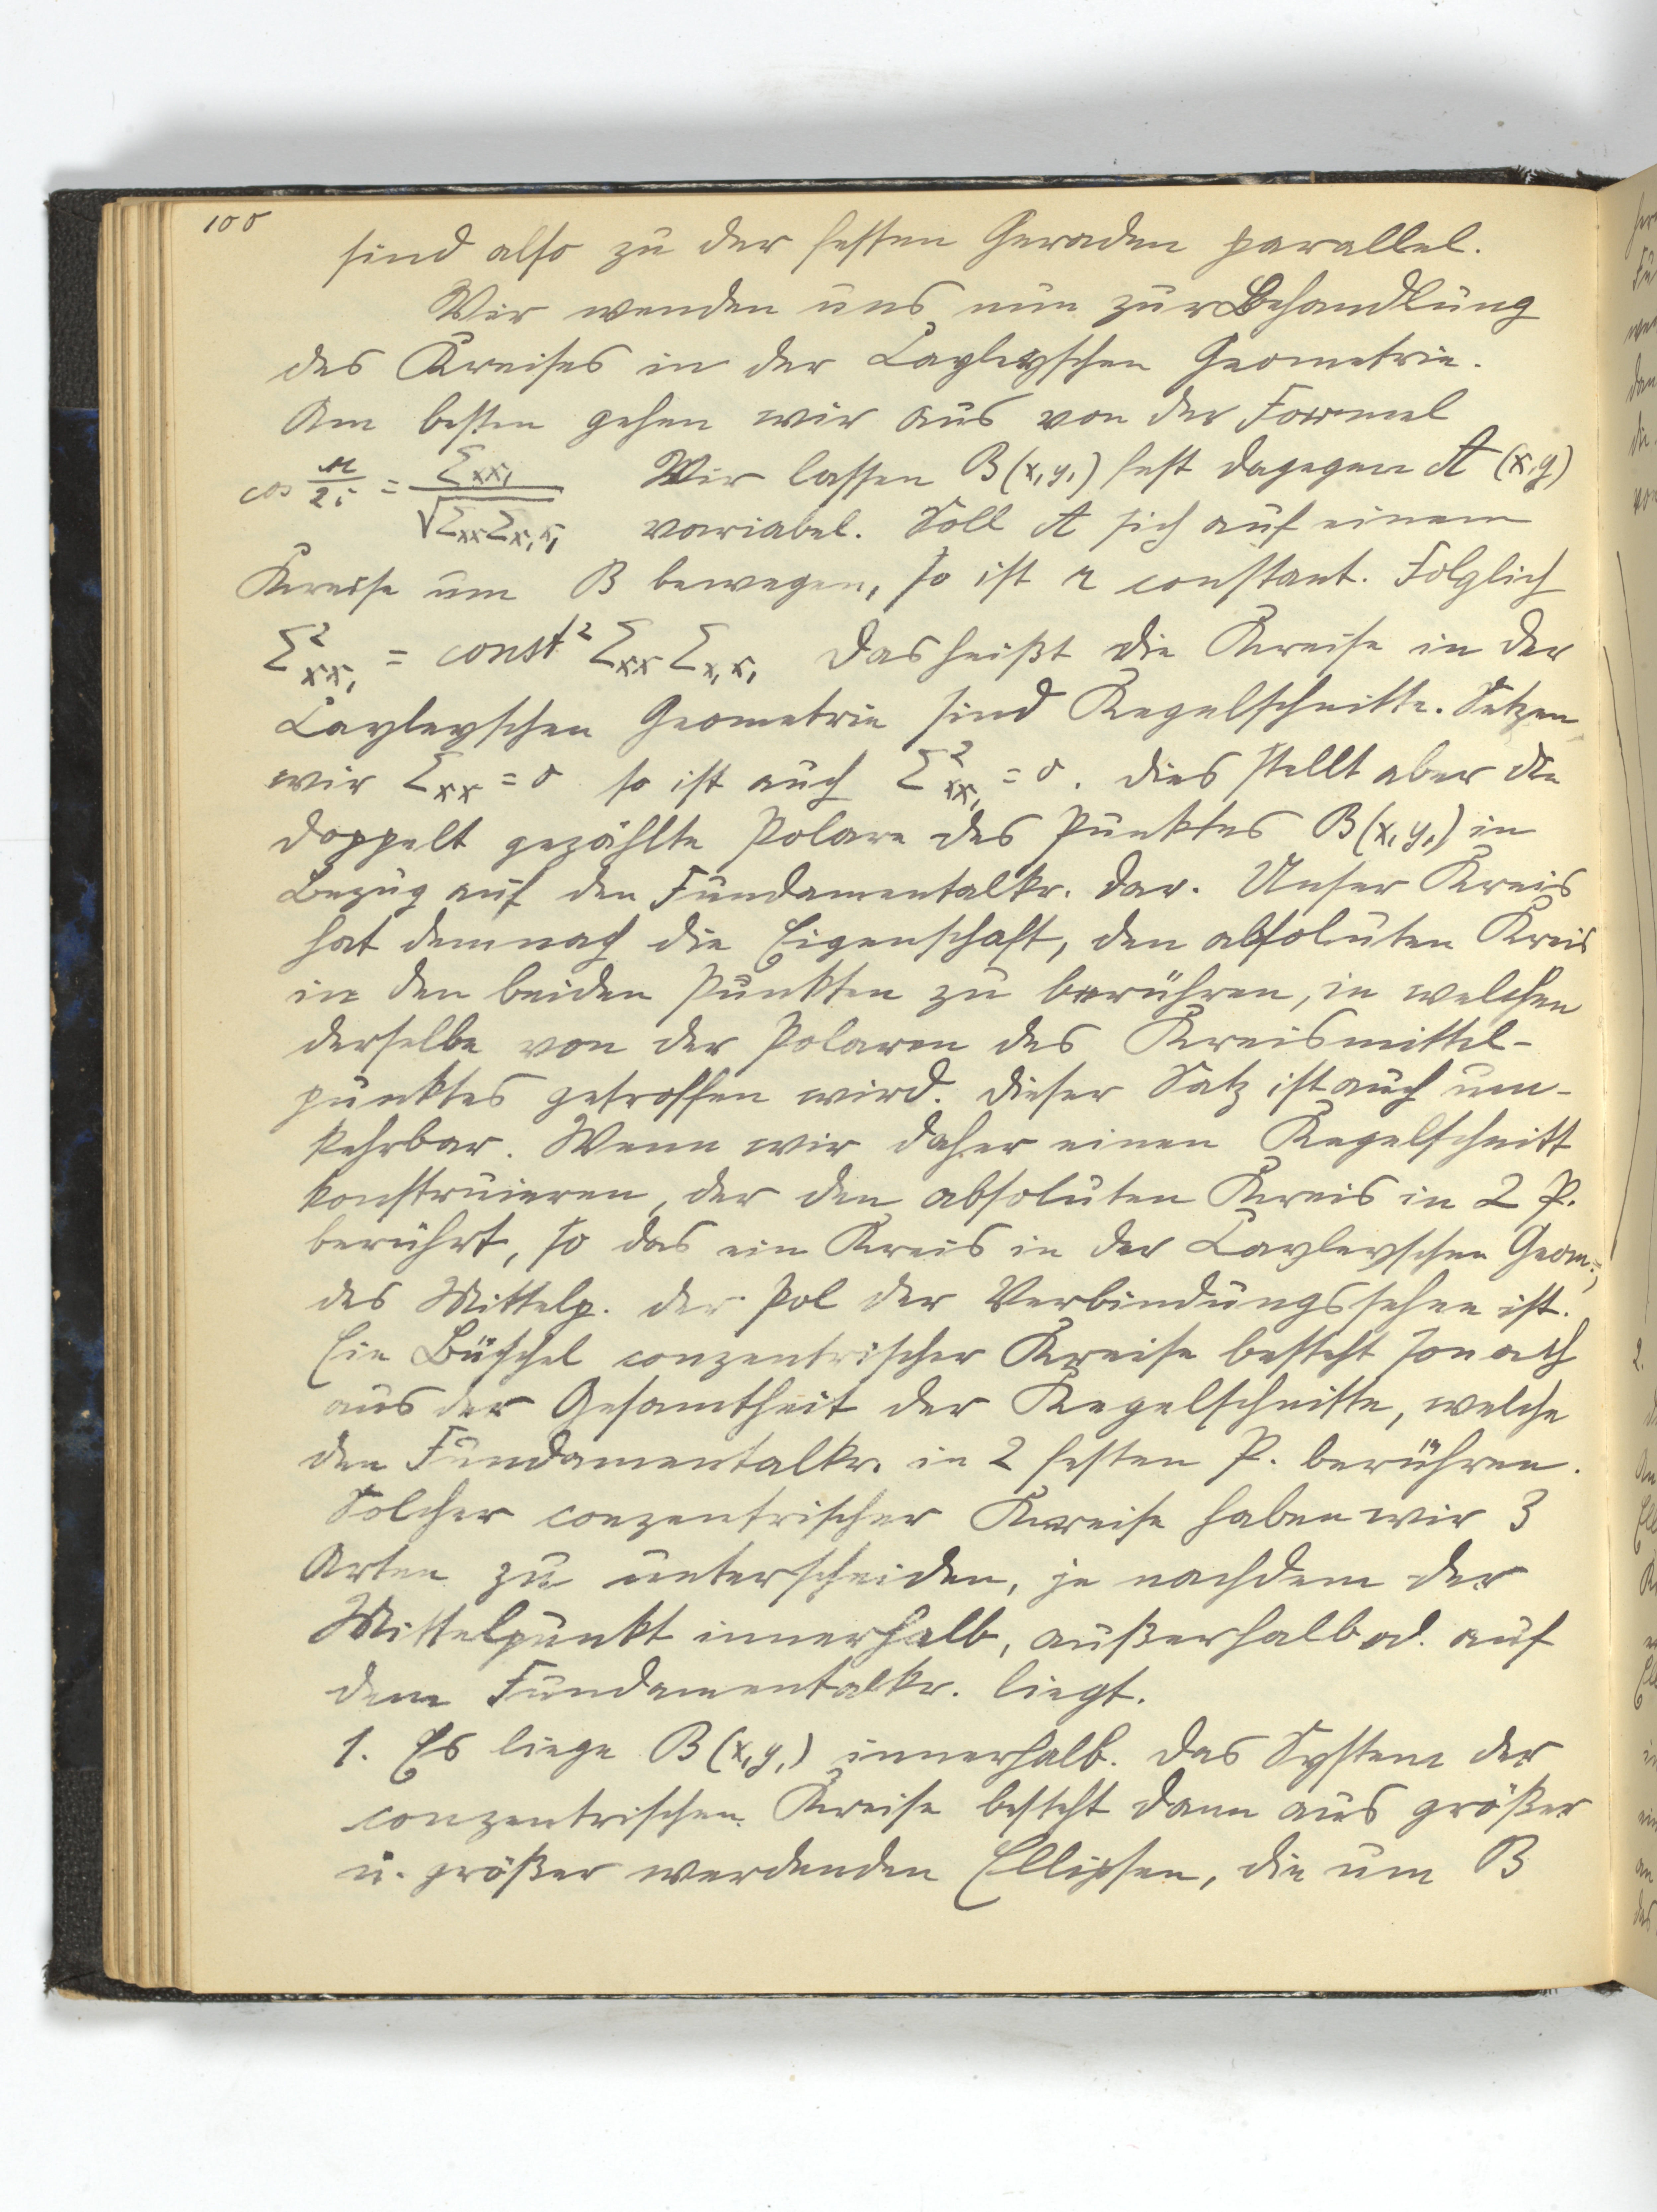 100
sind also zu der festen Geraden parallel.
Wir wenden uns nun zur Behandlung
des Kreises in der Cayleyschen Geometrie.
Am besten gehen wir aus von der Formel
cos r/2i = Σxx₁/√Σxx Σx₁x₁ Wir lassen B(x₁y₁) fest dagegen A (x,y)
variabel. Soll A sich auf einem
Kreise um B bewegen, so ist r constant. Folglich
Σ²xx₁ = const² Σxx Σx₁x₁ Das heißt die Kreise in der
Cayleyschen Geometrie sind Kegelschnitte. Setzen
wir Σxx = 0 so ist auch Σ²xx₁ = 0. Dies stellt aber die
doppelt gezählte Polare des Punktes B(x₁y₁) in
Bezug auf den Fundamentalkr. dar. Unser Kreis
hat demnach die Eigenschaft, den absoluten Kreis
in den beiden Punkten zu berühren, in welchen
derselbe von der Polaren des Kreismittel-
punktes getroffen wird. Dieser Satz ist auch um-
kehrbar. Wenn wir daher einen Kegelschnitt
konstruieren, der den absoluten Kreis in 2 P.
berührt, so das ein Kreis in der Cayleyschen Geom.,
des Mittelp. der Pol der Verbindungssehne ist.
Ein Büschel conzentrischer Kreise besteht sonach
aus der Gesamtheit der Kegelschnitte, welche
den Fundamentalkr. in 2 festen P. berühren.
Solcher conzentrischer Kreise haben wir 3
Arten zu unterscheiden, je nachdem der
Mittelpunkt innerhalb, außerhalb od. auf
dem Fundamentalkr. liegt.
1. Es liege B(x₁y₁) innerhalb. Das System der
conzentrischen Kreise besteht dann aus größer
u. größer werdenden Ellipsen, die um B